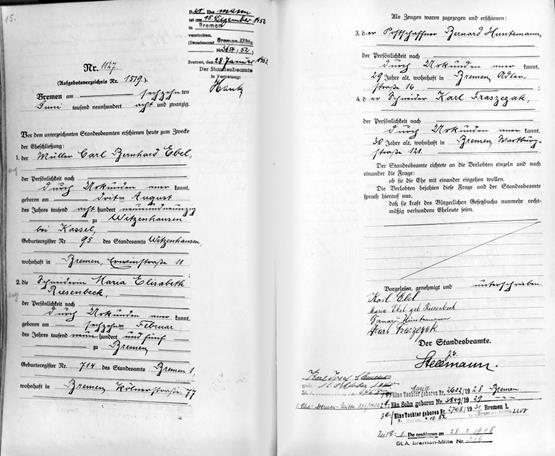 15.
Der Ehemann
ist am 15. Dezember 1952
in Bremen
verstorben.
(Standesamt Bremen-Mitte
Bremen, den 28. Januar
Der Standesbeamte
In Vertretung
Nr. 1127
(Aufgebotsverzeichnis Nr. 1519.)
Bremen am sechzehnten
Juni tausend neunhundert acht und zwanzig.
Vor dem unterzeichneten Standesbeamten erschienen heute zum Zwecke
der Eheschließung:
1. der Müller Carl Bernhard Ebel,
der Persönlichkeit nach
durch Urkunden aner kannt,
geboren am dritten August
des Jahres tausend acht hundert neunundneunzig
zu Witzenhausen
bei Kassel,
Geburtsregister Nr. 95 des Standesamts Witzenhausen,
wohnhaft in Bremen, Erwinstraße 11
2. die Schneiderin Maria Elisabeth
Riesenbeck,
der Persönlichkeit nach
durch Urkunden aner kannt,
geboren am sechzehn Februar
des Jahres tausend neun hundert und fünf
zu Bremen
Geburtsregister Nr. 714 des Standesamts Bremen 1,
wohnhaft in Bremen, Kölnerstraße 77
Als Zeugen waren zugezogen und erschienen:
3. der Postschaffner Bernard Huntemann,
der Persönlichkeit nach
durch Urkunden aner kannt,
29 Jahre alt, wohnhaft in Bremen, Adler-
straße 16
4. der Schneider Karl Fraszczak,
der Persönlichkeit nach
durch Urkunden aner kannt,
30 Jahre alt, wohnhaft in Bremen, Wartburg-
straße 121
Der Standesbeamte richtete an die Verlobten einzeln und nach
einander die Frage:
ob sie die Ehe mit einander eingehen wollen.
Die Verlobten bejahten diese Frage und der Standesbeamte
sprach hierauf aus,
daß sie kraft des Bürgerlichen Gesetzbuchs nunmehr recht-
mäßig verbundene Eheleute seien.
Vorgelesen, genehmigt und unterschrieben
Karl Ebel
Maria Ebel geb. Riesenbeck
Huntemann
Karl Fraszczak
Der Standesbeamte.
Eine Tochter geboren Nr. 2622/1928 Bremen
Ein Sohn geboren Nr.
Eine Tochter geboren Nr. 2708/ Bremen 1.
St. A. Bremen-Mitte Nr.